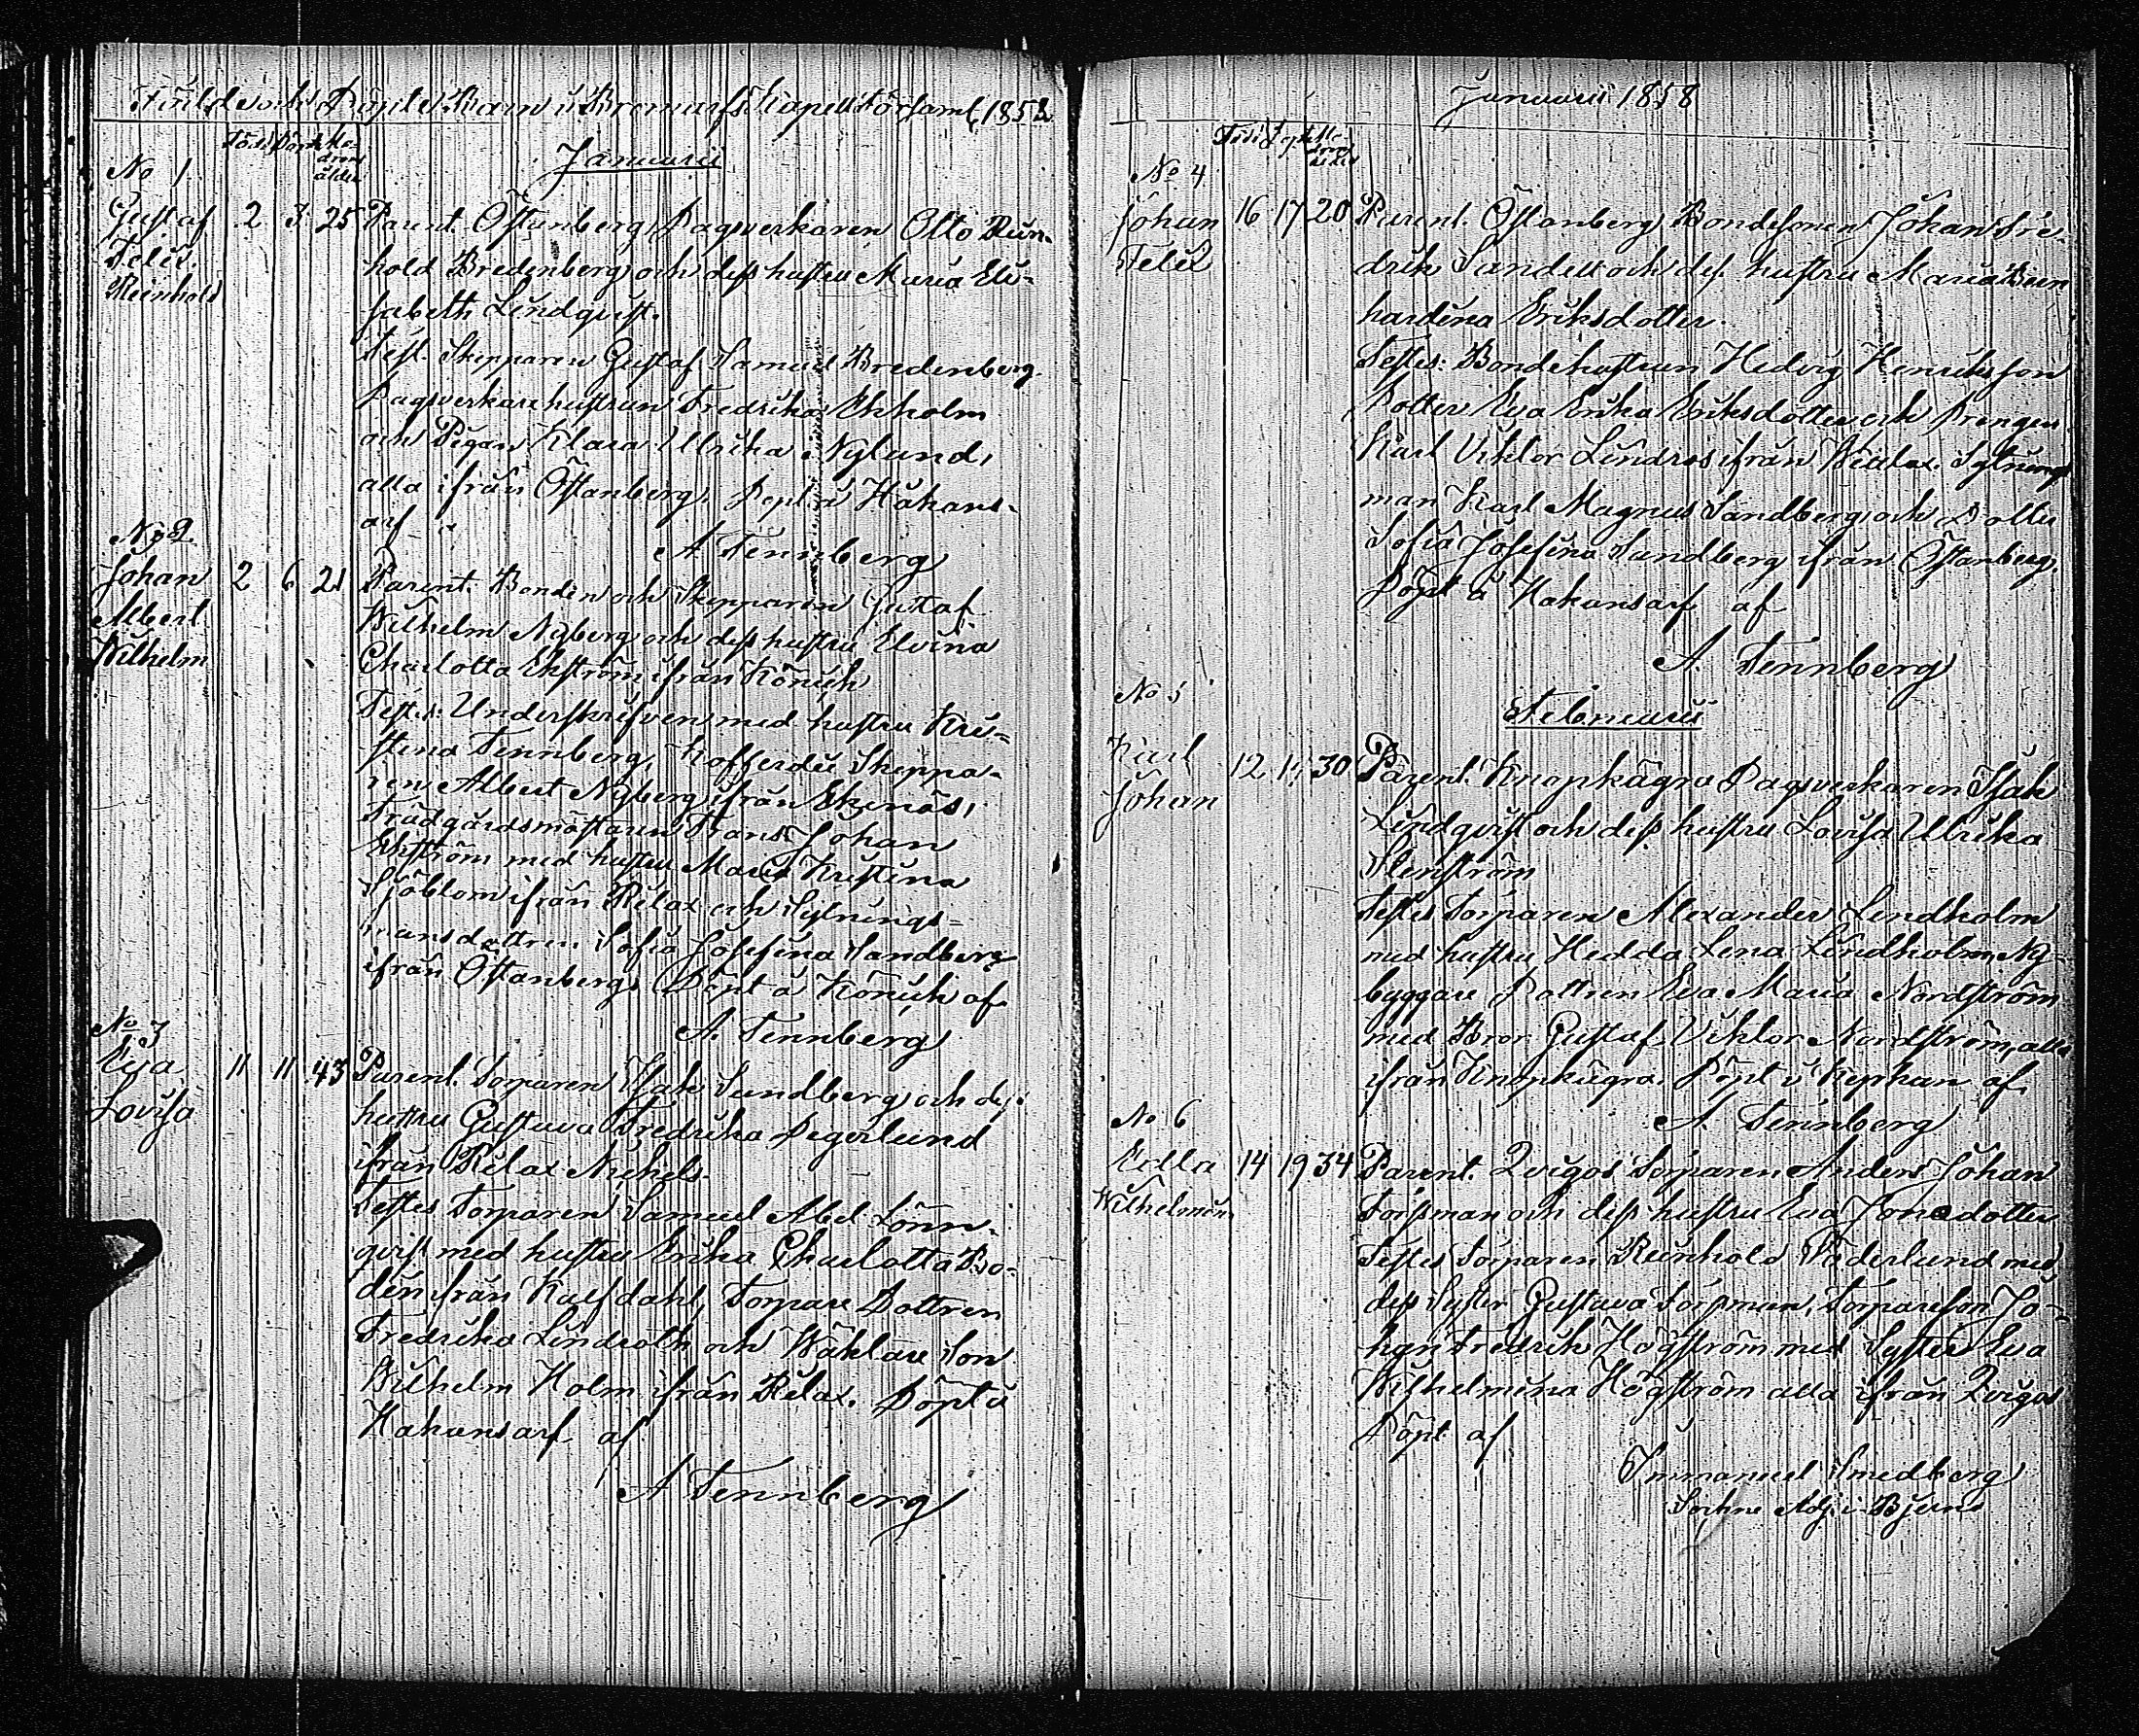 Födde och Döpte Barn i Bromarfs Kapell Församl. 1858
Född Döpt Mo-
drens
ålder
Januarii
No 1
Gustaf 2 3 25 Parent. Östanberg Dagsverkaren Otto Rein-
Felix hold Bredenberg och dess hustru Maria Eli-
Reinhold sabeth Lindqvist.
Test. Skepparen Gustaf Samuel Bredenberg
Dagsverkarehustrun Fredrika Ekholm
och Pigan Klara Ulrika Nylund,
alla ifrån Östanberg. Döpt å Håkans-
arf af
A Tennberg
No 2
Johan 2 6 21 Parent. Bonden och Skepparen Gustaf
Albert Wilhelm Nyberg och dess hustru Elvina
Wilhelm Charlotta Ekström ifrån Könick
Testes: Underskrifven med hustru Kri-
stina Tennberg, Kofferdie Skeppa-
ren Albert Nyberg ifrån Ekenäs,
Trädgårdsmästaren Frans Johan
Ekström med hustru Maria Kristina
Sjöblom ifrån Rilax och Sytnings-
mansdottren Sofia Josefina Sandberg
ifrån Östanberg. Döpt å Könick af
A. Tennberg
No 3
Eva 11 11 43 Parent. Torparen Isak Sundberg och dess
Lovisa hustru Gustava Fredrika Segerlund
ifrån Rilax Nickels.
Testes Torparen Samuel Abel Lönn-
qvist med hustru Erika Charlotta Bo-
dén ifrån Kalfdahl, Torpare Dottren
Fredrika Lindroth och Wäktare Son
Wilhelm Holm ifrån Rilax. Döpt å
Håkansarf af
A Tennberg
Januarii 1858
Född Döpt Mo-
drens
ålder
No 4
Johan 16 17 20 Parent. Östanberg Bondesonen Johan Fre-
Felix drik Sandell och dess hustru Maria Bern
hardina Eriksdotter.
Testes: Bondehustrun Hedvig Henriksson
Dotter Eva Erika Eriksdotter och Drengen
Karl Viktor Lindros ifrån Sytnings
man Karl Magnus Sandberg och Dotter
Sofia Josefina Sandberg ifrån Östanberg.
Döpt å Håkansarf af
A. Tennberg
No 5
Februarii
Karl 12 30 Parent. Knopkägra Dagsverkaren Isak
Johan Lindqvist och dess hustru Lovisa Ulrika
Stenström
Testes Torparen Alexander Lindholm
med hustru Hedda Lena Lindholm, Ny-
byggare Dottren Eva Maria Nordström
med Bror Gustaf Viktor Nordström, alla
ifrån Knopkägra. Döpt i af
A. Tennberg
No 6
Edla 14 19 34 Parent. Qvigos Torparen Anders Johan
Wilhelmina Torpman och dess hustru Eva Jonedotter
Testes Torparen Reinhold Söderlund med
dess Syster Gustava Torpman, Torpareson Jo-
han Fredrik Högström med Syster Eva
Wilhelmina Högström alla ifrån Qvigos
Döpt af
Immanuel Smedberg
Sockne Adj. i Bjerno